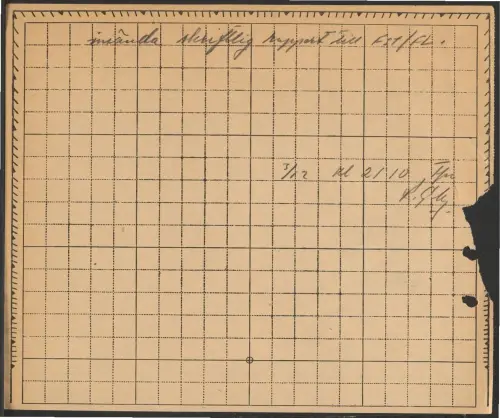 insända skriftlig rapport till Fst/FL.
3/12 kl 21 10